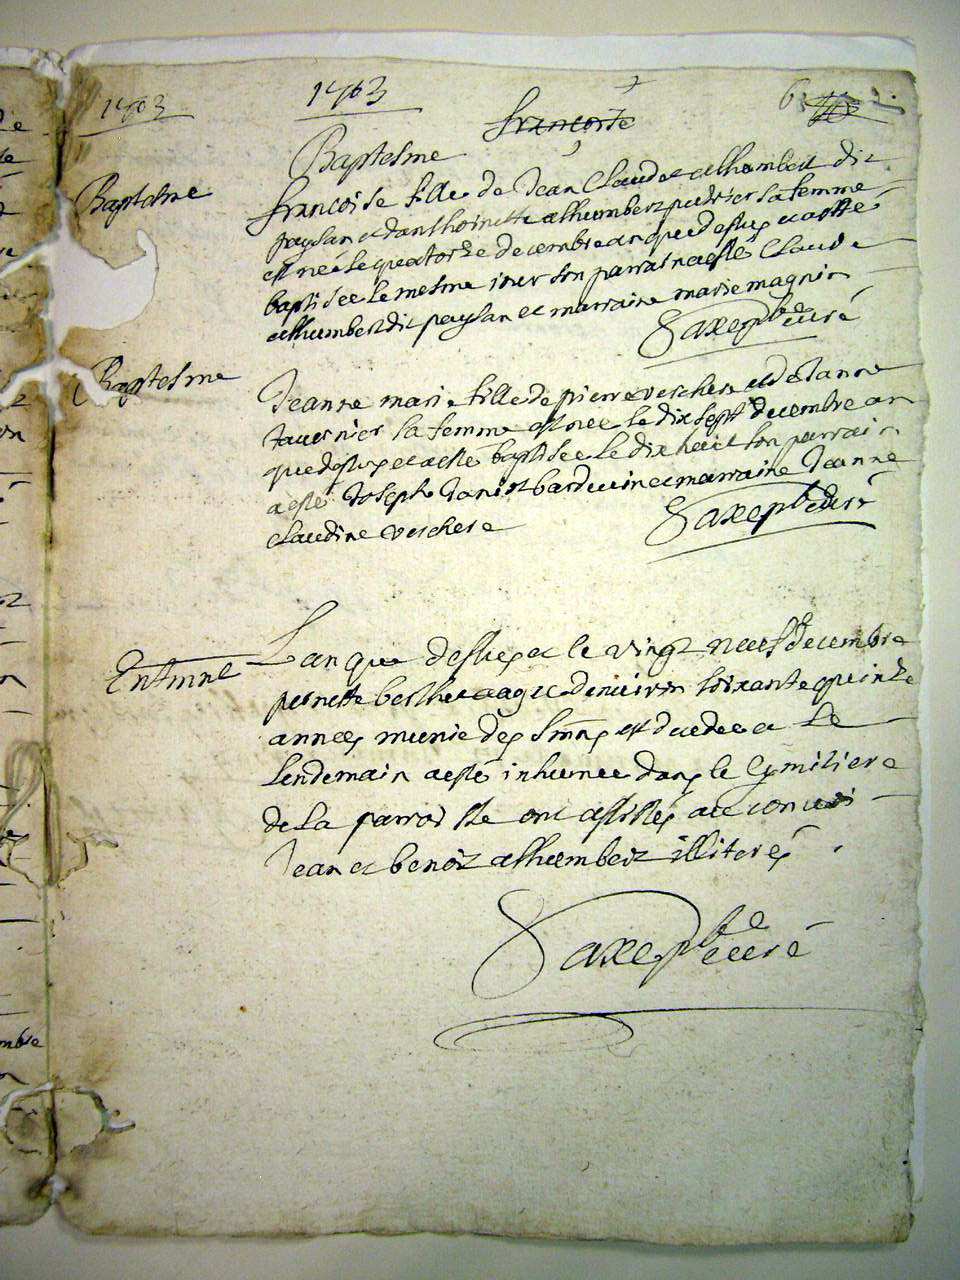 1703
1703
6
françoise
Baptesme
Baptesme
françoise fille de Jean Claude alhumbert dit
paysan et danthoinette alhumbert pudrier sa femme
est née le quatorze decembre an que dessus et a esté
baptisée le mesme jour son parrain a esté Claude
alhumbert dit paysan et marraine marie magnin
Saxe pbre curé
Baptesme
Jeanne marie fille de pierre verchere et de Janne
tavernier sa femme est née le dix sept decembre an
que dessus et a esté baptisée le dix huict son parrain
a esté Joseph barduin et marraine Jeanne
claudine verchere
Saxe pbre curé
Enterrme
Lan que dessus et le vingt neuf decembre
pernette berthet aagée denviron soixante quinze
années munie des Smns est decedee et le
lendemain a esté inhumee dans le Cymitiere
de la parroisse ont assistés au convoi
Jean et benoit alhumbert illiterés
Saxe pbre curé